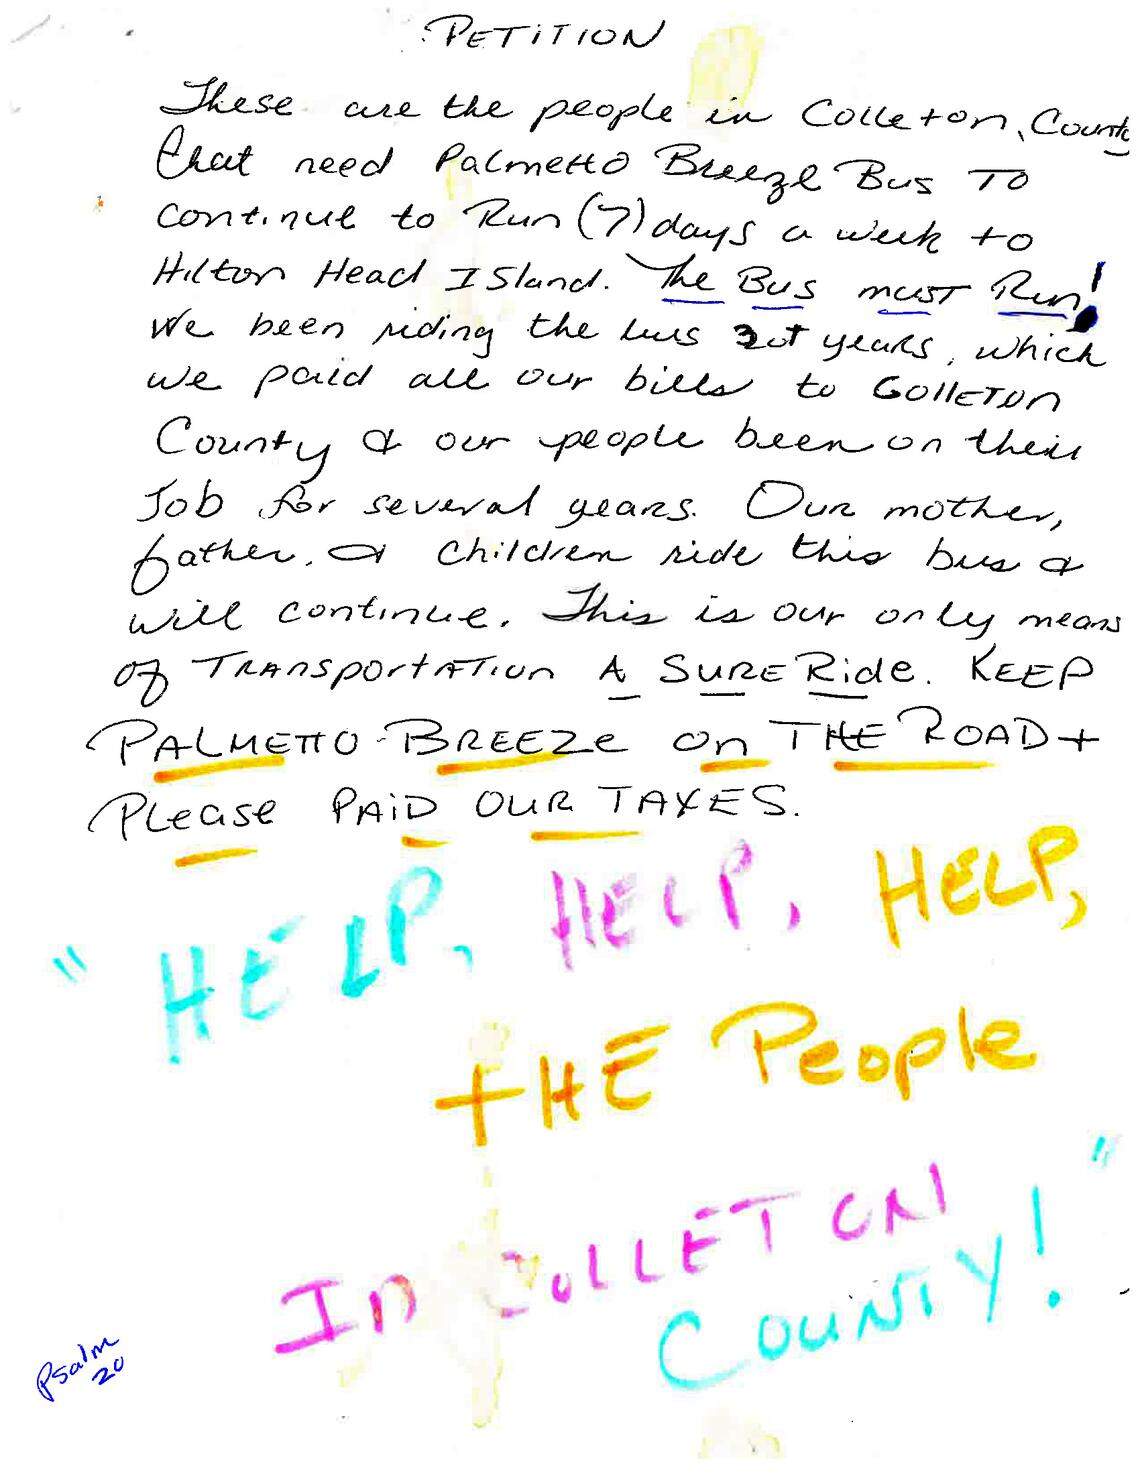 PETITION
These are the people in Colleton, County
that need Palmetto Breeze Bus To
continue to Run (7) days a week to
Hilton Head ISland. The Bus must Run!
We been riding the bus 30+ years, which
we paid all our bills to COLLETON
County & our people been on their
Job for several years. Our mother,
father, & children ride this bus &
will continue. This is our only means
of TRANSportATION A SURE Ride. KEEP
PALMETTO-BREEZe on THE ROAD +
PLease PAiD OUR TAXES.
"HELP, HELP, HELP,
tHE People
In COLLETON
COUNTY!"
Psalm
20